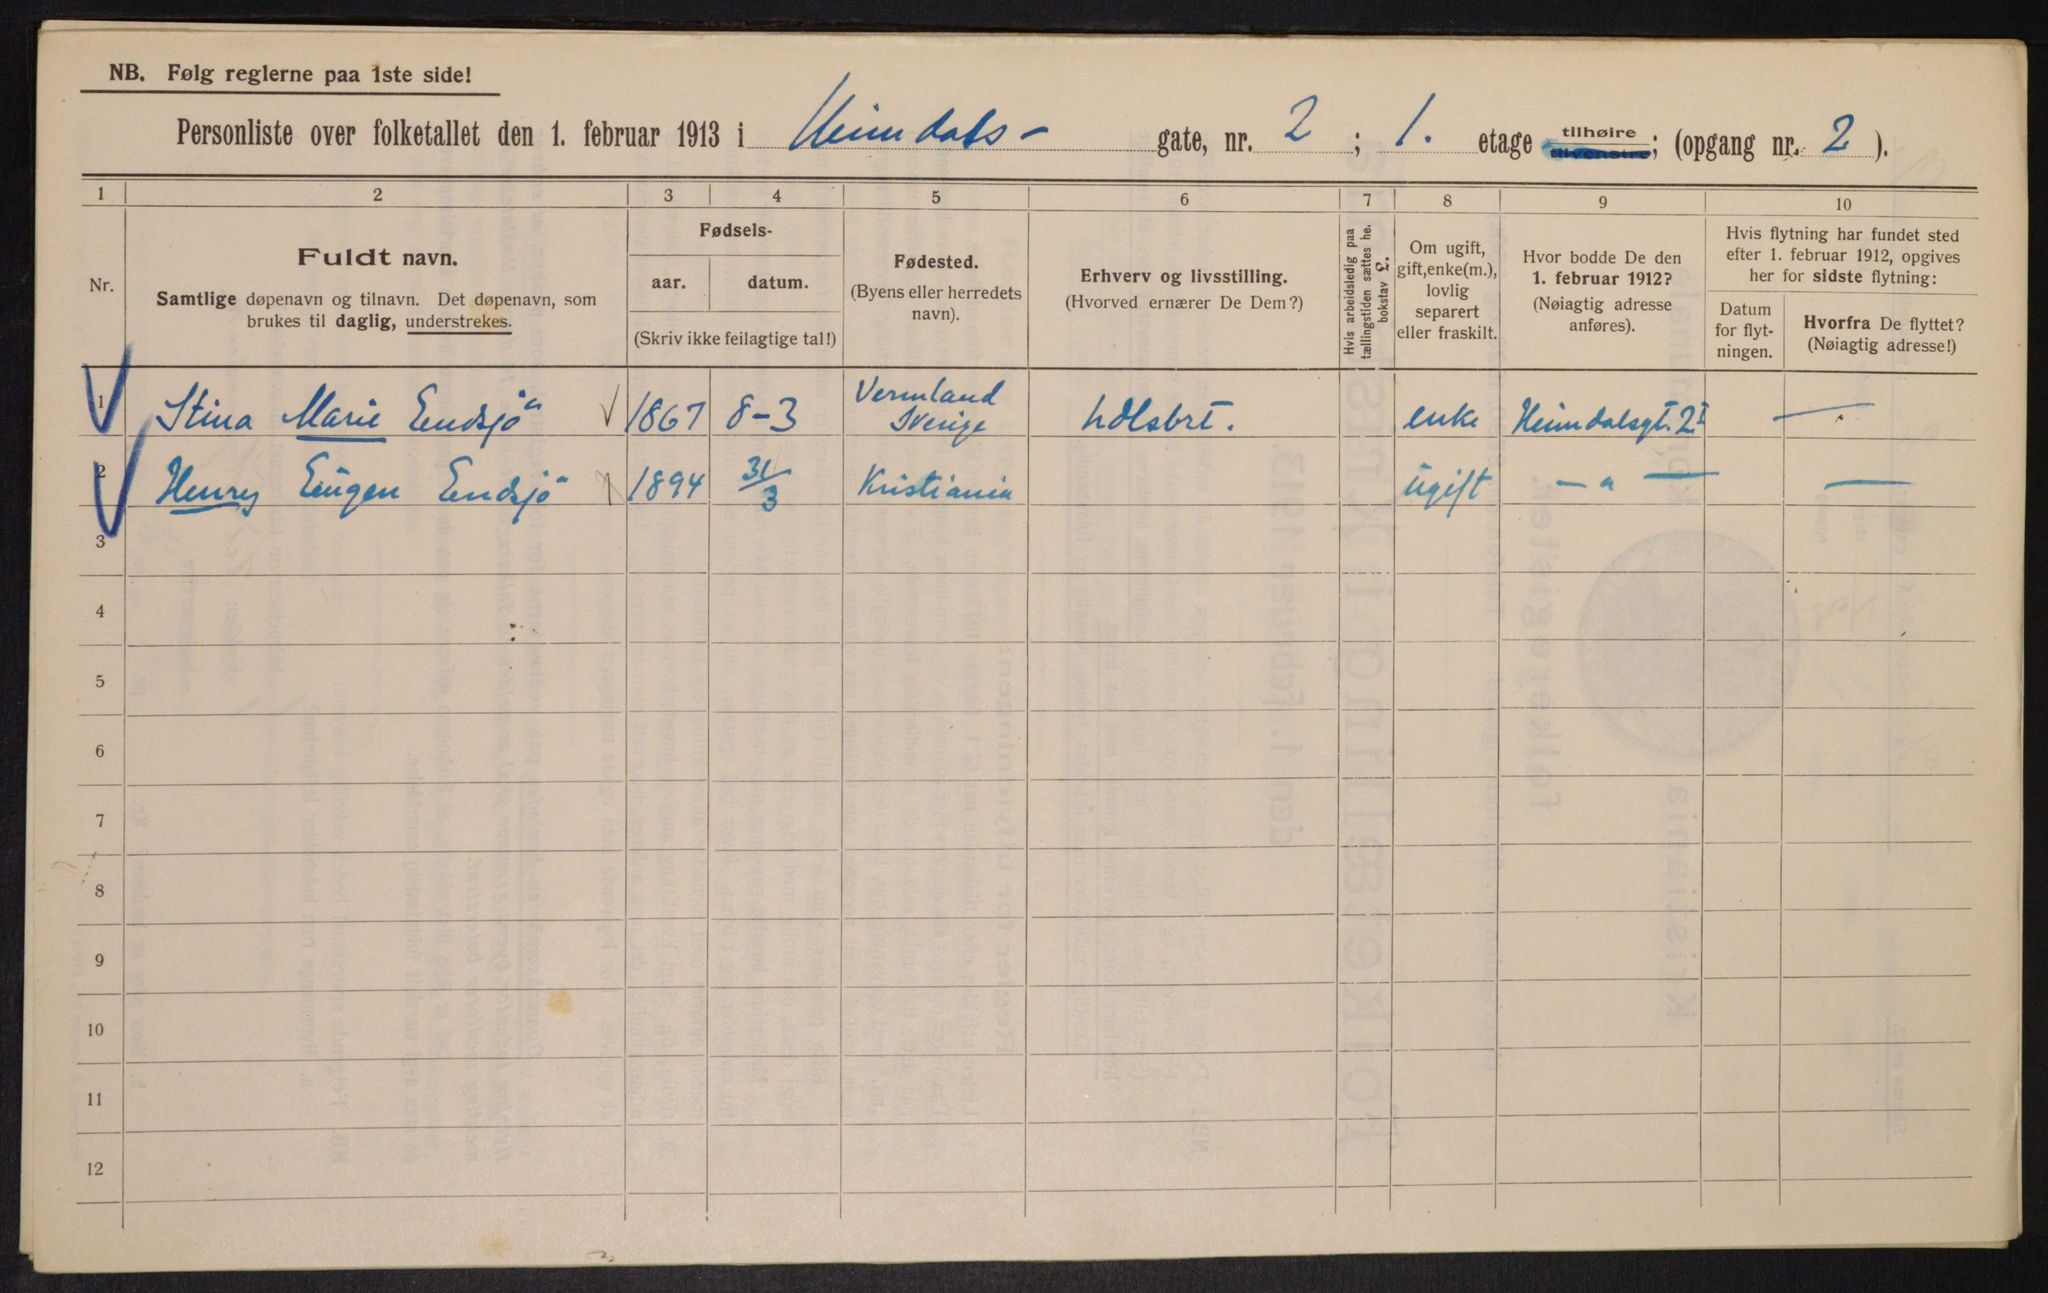 NB. Følg reglerne paa 1ste side!
Personliste over folketallet den 1. februar 1913 i Heimdals- gate, nr. 2 ; 1. etage tilhøire tilvenstre; (opgang nr. 2 ).
1 2 3 4 5 6 7 8 9 10
Nr.
Fuldt navn.
Samtlige døpenavn og tilnavn. Det døpenavn, som
brukes til daglig, understrekes.
Fødsels-
aar. datum.
(Skriv ikke feilagtige tal!)
Fødested.
(Byens eller herredets
navn).
Erhverv og livsstilling.
(Hvorved ernærer De Dem?)
Hvis arbeidsledig paa
tællingstiden sættes he.
bokstav L.
Om ugift,
gift, enke(m.),
lovlig
separert
eller fraskilt.
Hvor bodde De den
1. februar 1912?
(Nøiagtig adresse
anføres).
Hvis flytning har fundet sted
efter 1. februar 1912, opgives
her for sidste flytning:
Datum
for flyt-
ningen.
Hvorfra De flyttet?
(Nøiagtig adresse!)
1 Stina Marie Endsjö 1867 8-3 Vermland Sverige hdlsbrt. enke Heimdalsgt. 2 I —
2 Henry Eugen Endsjö 1894 31/3 Kristiania ugift — " — —
3
4
5
6
7
8
9
10
11
12